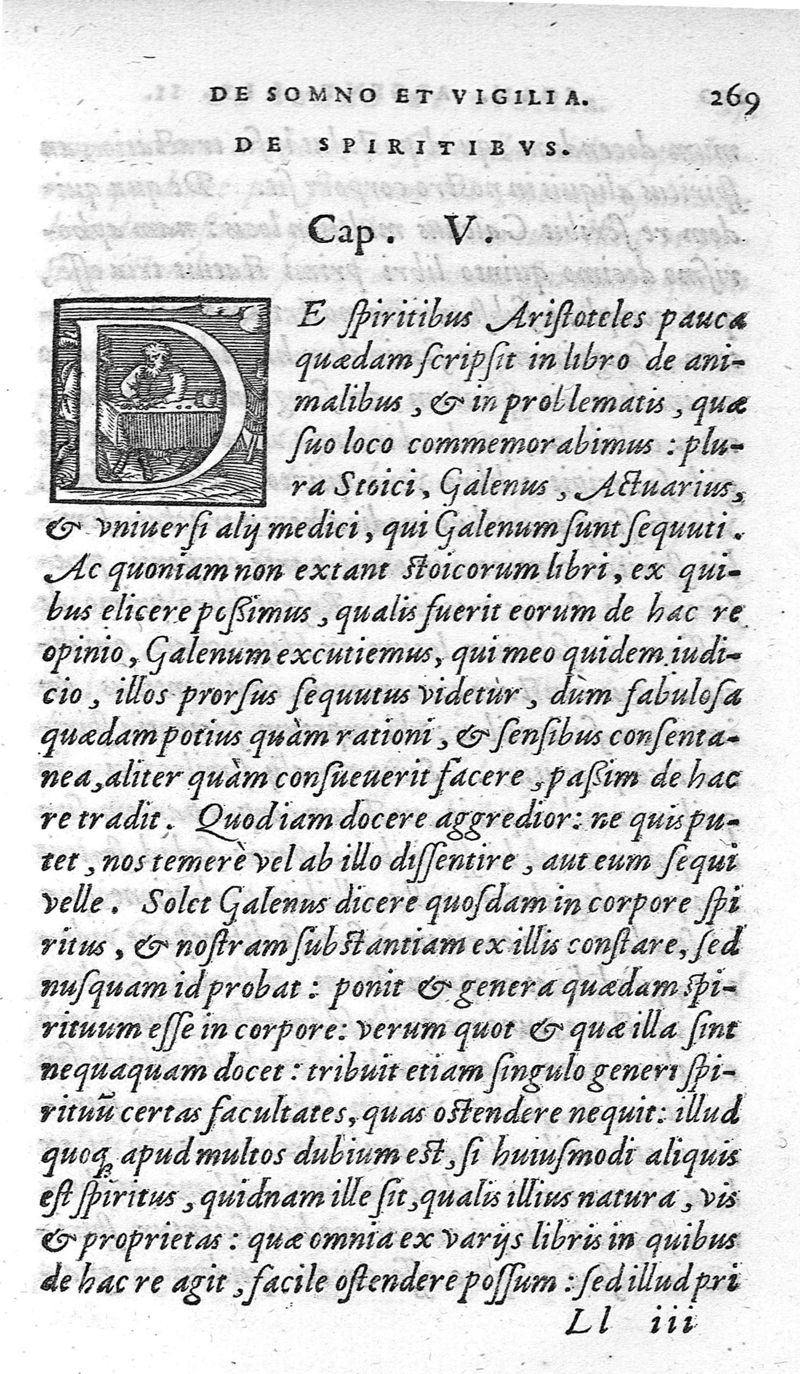 DE SOMNO ET VIGILIA. 269
DE SPIRITIBVS.
Cap. V.
DE spiritibus Aristoteles pauca
quædam scripsit in libro de ani-
malibus, & in problematis, quæ
suo loco commemorabimus: plu-
ra Stoici, Galenus, Actuarius,
& vniuersi alij medici, qui Galenum sunt sequuti.
Ac quoniam non extant stoicorum libri, ex qui-
bus elicere poßimus, qualis fuerit eorum de hac re
opinio, Galenum excutiemus, qui meo quidem iudi-
cio, illos prorsus sequutus videtùr, dùm fabulosa
quædam potius quàm rationi, & sensibus consenta-
nea, aliter quàm consueuerit facere, paßim de hac
re tradit. Quod iam docere aggredior: ne quis pu-
tet, nos temerè vel ab illo dissentire, aut eum sequi
velle. Solet Galenus dicere quosdam in corpore spi
ritus, & nostram substantiam ex illis constare, sed
nusquam id probat: ponit & genera quædam spi-
rituum esse in corpore: verum quot & quæ illa sint
nequaquam docet: tribuit etiam singulo generi spi-
rituũ certas facultates, quas ostendere nequit: illud
quoq; apud multos dubium est, si huiusmodi aliquis
est spiritus, quidnam ille sit, qualis illius natura, vis
& proprietas: quæ omnia ex varijs libris in quibus
de hac re agit, facile ostendere possum: sed illud pri
Ll iii